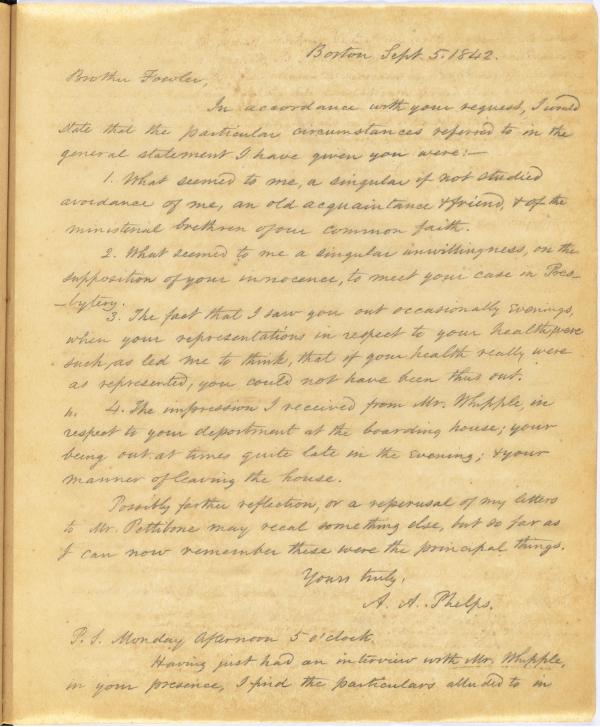 Boston Sept. 5. 1842.
Brother Fowler,
In accordance with your request, I would
state that the particular circumstances referred to in the
general statement I have given you were:—
1. What seemed to me, a singular if not studied
avoidance of me, an old acquaintance & friend, & of the
ministerial brethren of our common faith.
2. What seemed to me a singular unwillingness, on the
supposition of your innocence, to meet your case in Pres-
-bytery.
3. The fact that I saw you out occasionally evenings,
when your representations in respect to your health, were
such, as led me to think, that if your health really were
as represented, you could not have been thus out.
4. The impression I received from Mr. Whipple, in
respect to your deportment at the boarding house; your
being out at times quite late in the evening; & your
manner of leaving the house.
Possibly farther reflection, or a reperusal of my letters
to Mr. Pettibone may recal something else, but so far as
I can now remember these were the principal things.
Yours truly,
A. A. Phelps.
P. S. Monday Afternoon 5 o'clock.
Having just had an interview with Mr. Whipple,
in your presence, I find the particulars alluded to in